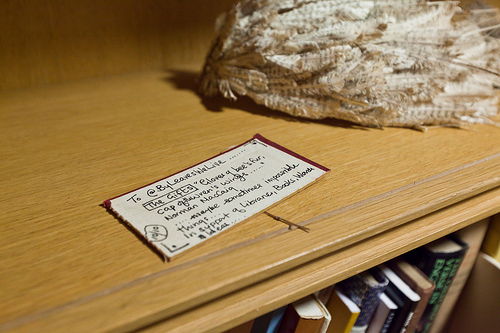 To @ByLeavesWeLive......
"THE GIFTS" "Gloves of bee's fur,
cap of wren's wings......"
Norman MacCaig
... maybe sometimes impossible
things...
In support of Libraries, Books, Words
& Ideas.....